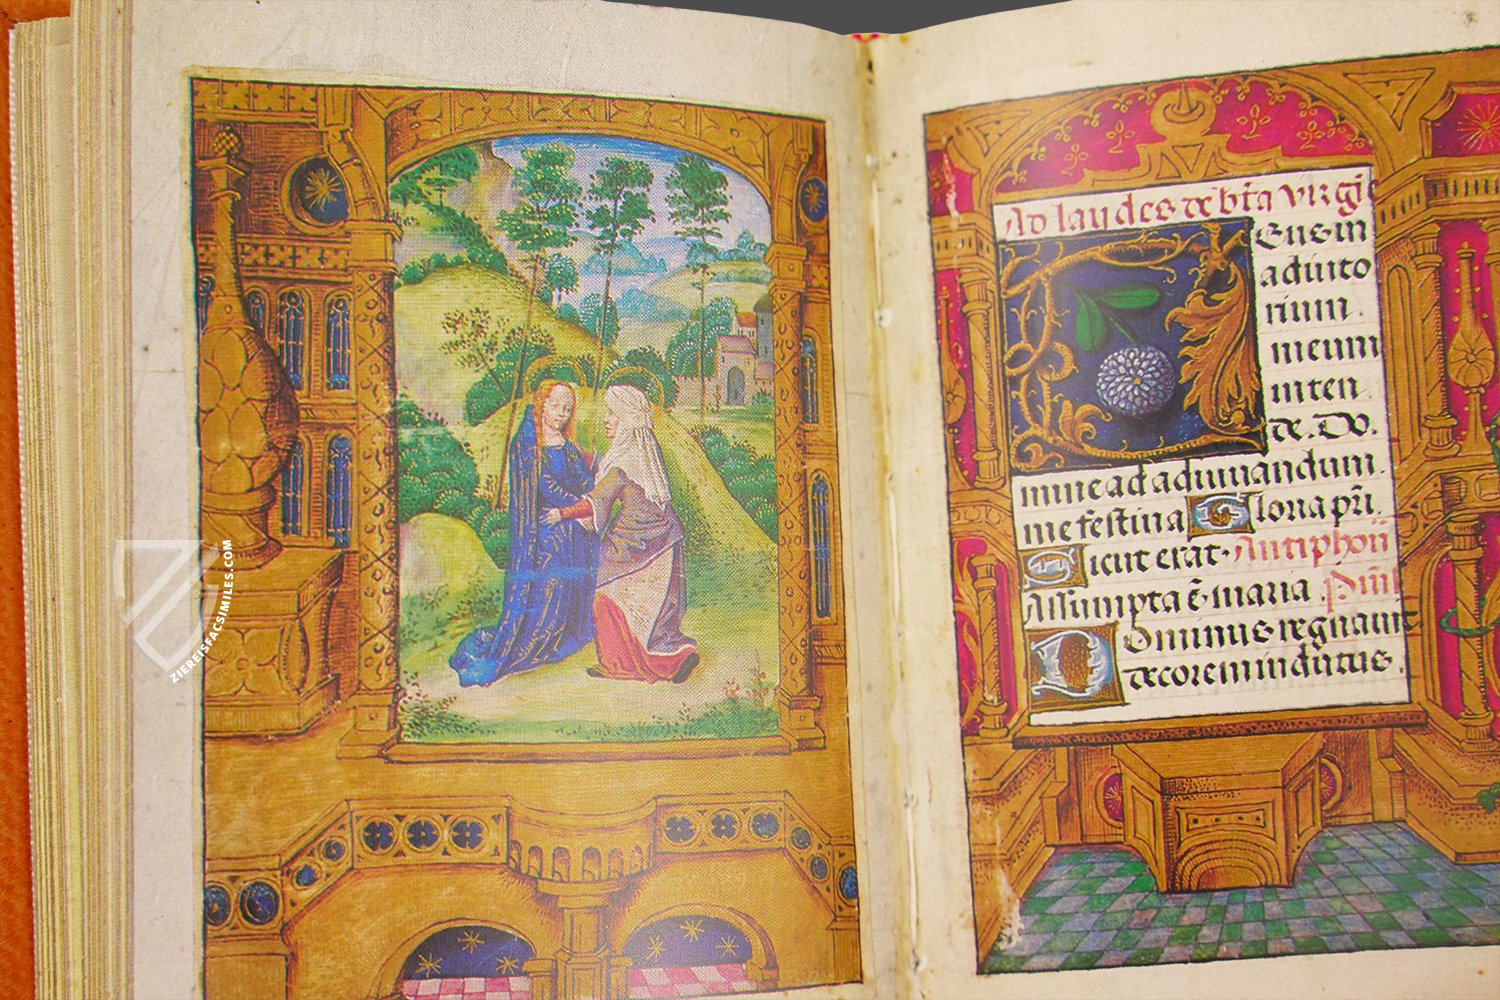 Ad laudes de bta virgī
Eus in
adiuto
rium.
meum
inten
de. Do.
mine ad adiuuandum.
me festina Gloria pri.
Sicut erat. Antiphon
Assumpta ē maria. Psal
Dominus regnauit
decorem indutus.
ZIEREISFACSIMILES.COM